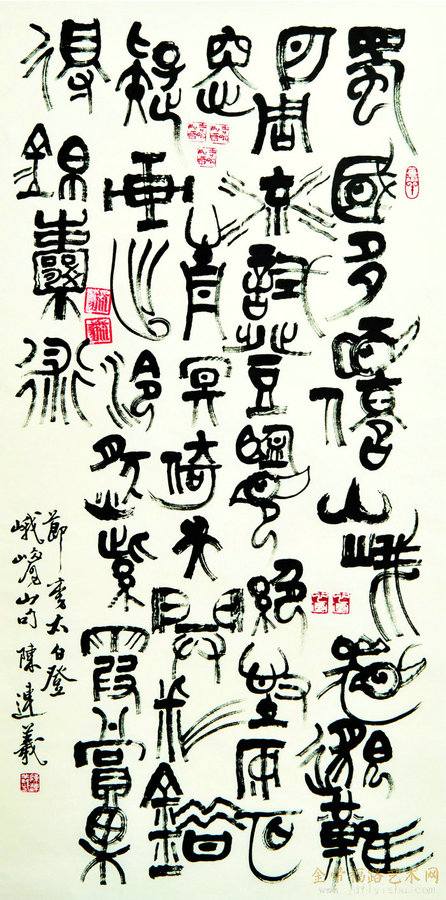 蜀國多僊山峨眉邈難
匹周流試登覽絕怪安可
悉青冥倚天開彩錯
疑畫出泠然紫霞賞果
得錦囊術
節書太白登
峨眉山句 陳